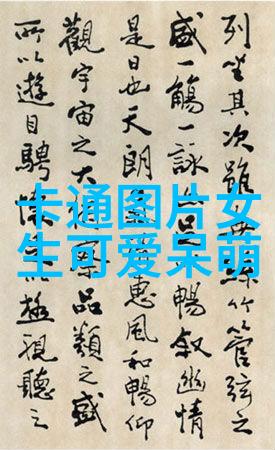 列坐其次雖竹管弦之
盛一觴一詠暢敘幽情
是日也天朗惠風和暢仰
觀宇宙之大品類之盛
所以遊目騁極視聽之
卡通图片女
生可爱呆萌